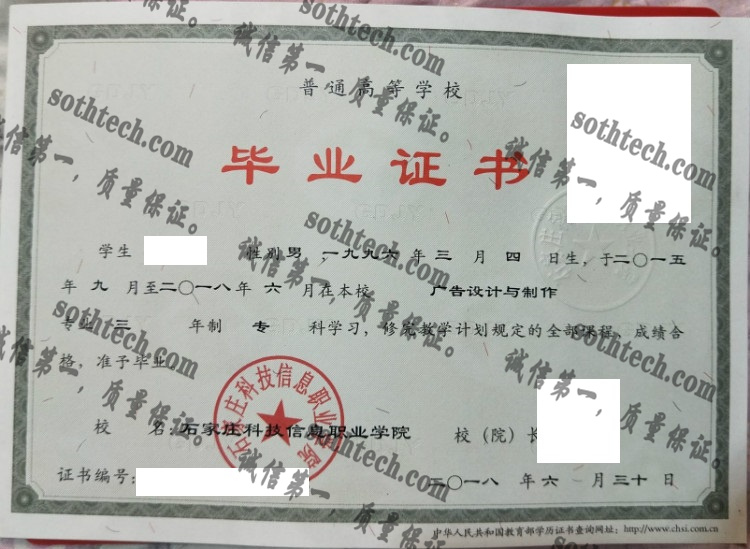 普通高等学校
毕业证书
学生 性别 男 ,一九九六 年 三 月 四 日生,于二〇一五
年 九 月至二〇一八年 六 月在本校 广告设计与制作
专业 三 年制 专 科学习,修完教学计划规定的全部课程,成绩合
格,准予毕业。
校 名:石家庄科技信息职业学院 校(院)长
证书编号:
二〇一八 年 六 月三十日
中华人民共和国教育部学历证书查询网址:http://www.chsi.com.cn
石家庄科技信息职业学院
sothtech.com
诚信第一,质量保证。
sothtech.com
诚信第一,质量保证。
sothtech.com
诚信第一,质量保证。
sothtech.com
诚信第一,质量保证。
sothtech.com
诚信第一,质量保证。
sothtech.com
诚信第一,质量保证。
sothtech.com
诚信第一,质量保证。
sothtech.com
诚信第一,质量保证。